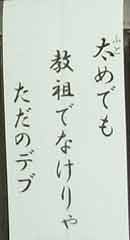 太めでも
教祖でなけりゃ
ただのデブ